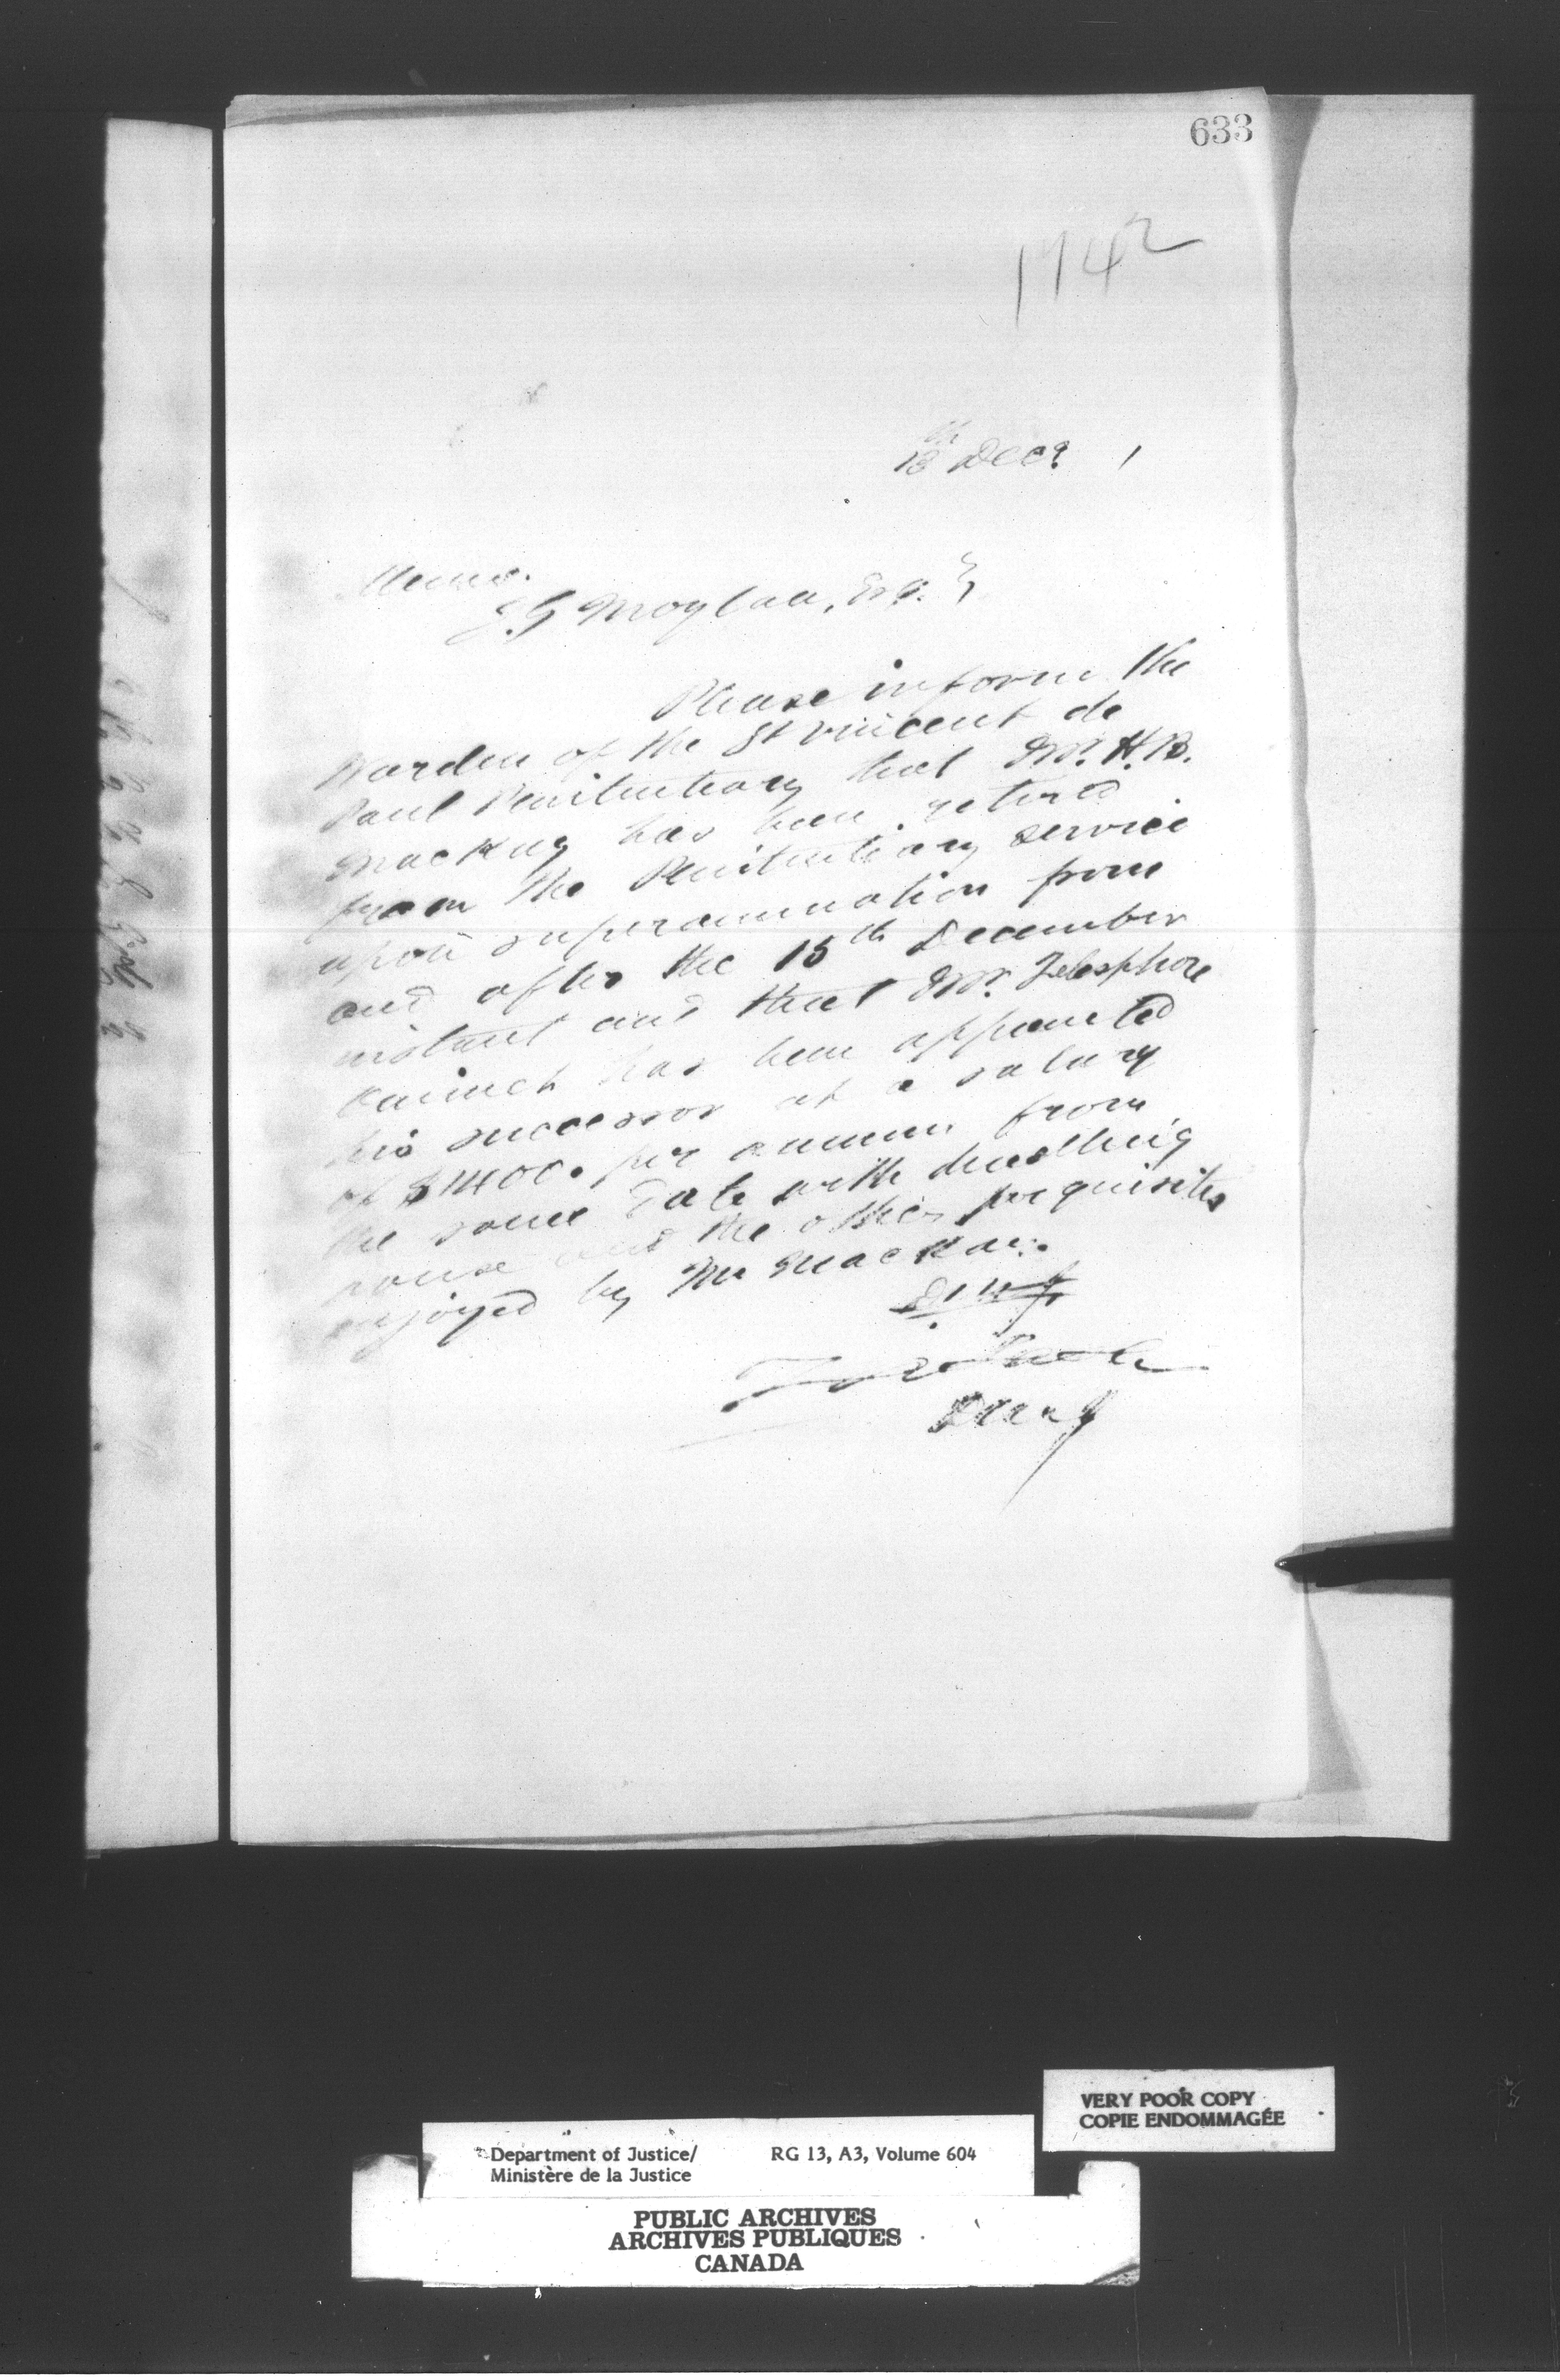 633
1742
18th Decr. 1
Memo.
J. G. Moylan, Esq.
Please inform the
Warden of the St Vincent de
Paul Penitentiary that Mr. H. B.
Mackay has been retired
from the Penitentiary service
upon superannuation from
and after the 15th December
instant and that Mr. Telesphore
Ouimet has been appointed
his successor at a salary
of $1400. per annum from
the same date with dwelling
house and the other perquisites
enjoyed by Mr Mackay.
VERY POOR COPY
COPIE ENDOMMAGÉE
Department of Justice/ RG 13, A3, Volume 604
Ministère de la Justice
PUBLIC ARCHIVES
ARCHIVES PUBLIQUES
CANADA